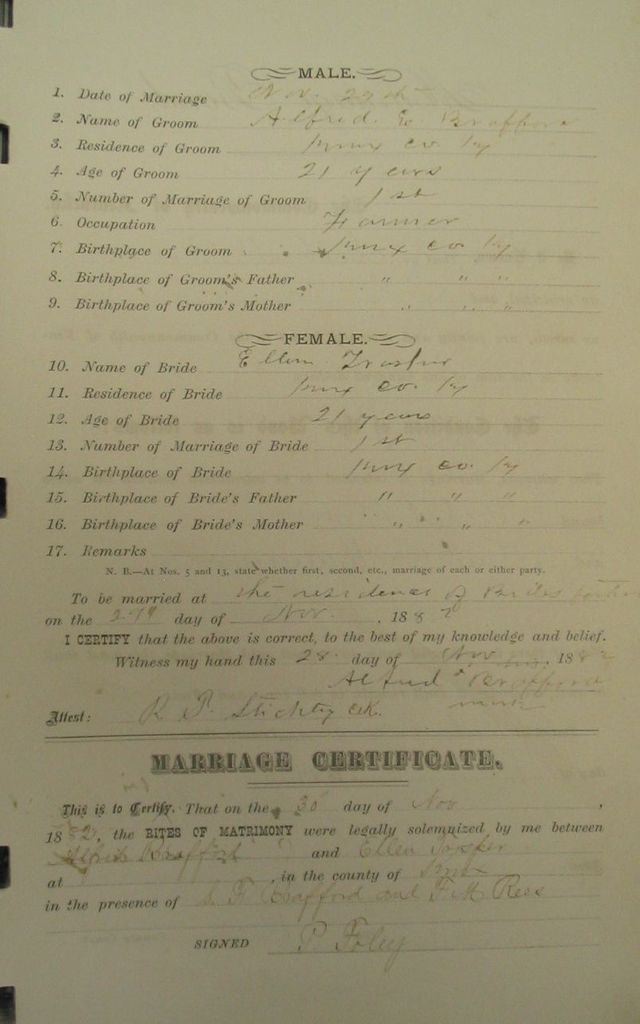 MALE.
1. Date of Marriage Nov. 29th
2. Name of Groom Alfred E Brafford
3. Residence of Groom Knox co Ky
4. Age of Groom 21 years
5. Number of Marriage of Groom 1st
6. Occupation Farmer
7. Birthplace of Groom Knox co Ky
8. Birthplace of Groom's Father " " "
9. Birthplace of Groom's Mother " " "
FEMALE.
10. Name of Bride Ellen
11. Residence of Bride Knox co. Ky
12. Age of Bride 21 years
13. Number of Marriage of Bride 1st
14. Birthplace of Bride Knox co. Ky
15. Birthplace of Bride's Father " " "
16. Birthplace of Bride's Mother " " "
17. Remarks
N. B.—At Nos. 5 and 13, state whether first, second, etc., marriage of each or either party.
To be married at the residence of Brides
on the 29 day of Nov. , 1882
I CERTIFY that the above is correct, to the best of my knowledge and belief.
Witness my hand this 28 day of Nov , 1882
Alfred x Brafford
mark
Attest: R. P. Clk.
MARRIAGE CERTIFICATE.
This is to Certify, That on the 30 day of Nov ,
1882, the RITES OF MATRIMONY were legally solemnized by me between
Alfred Brafford and Ellen
at , in the county of Knox
in the presence of Brafford and
SIGNED P. Foley